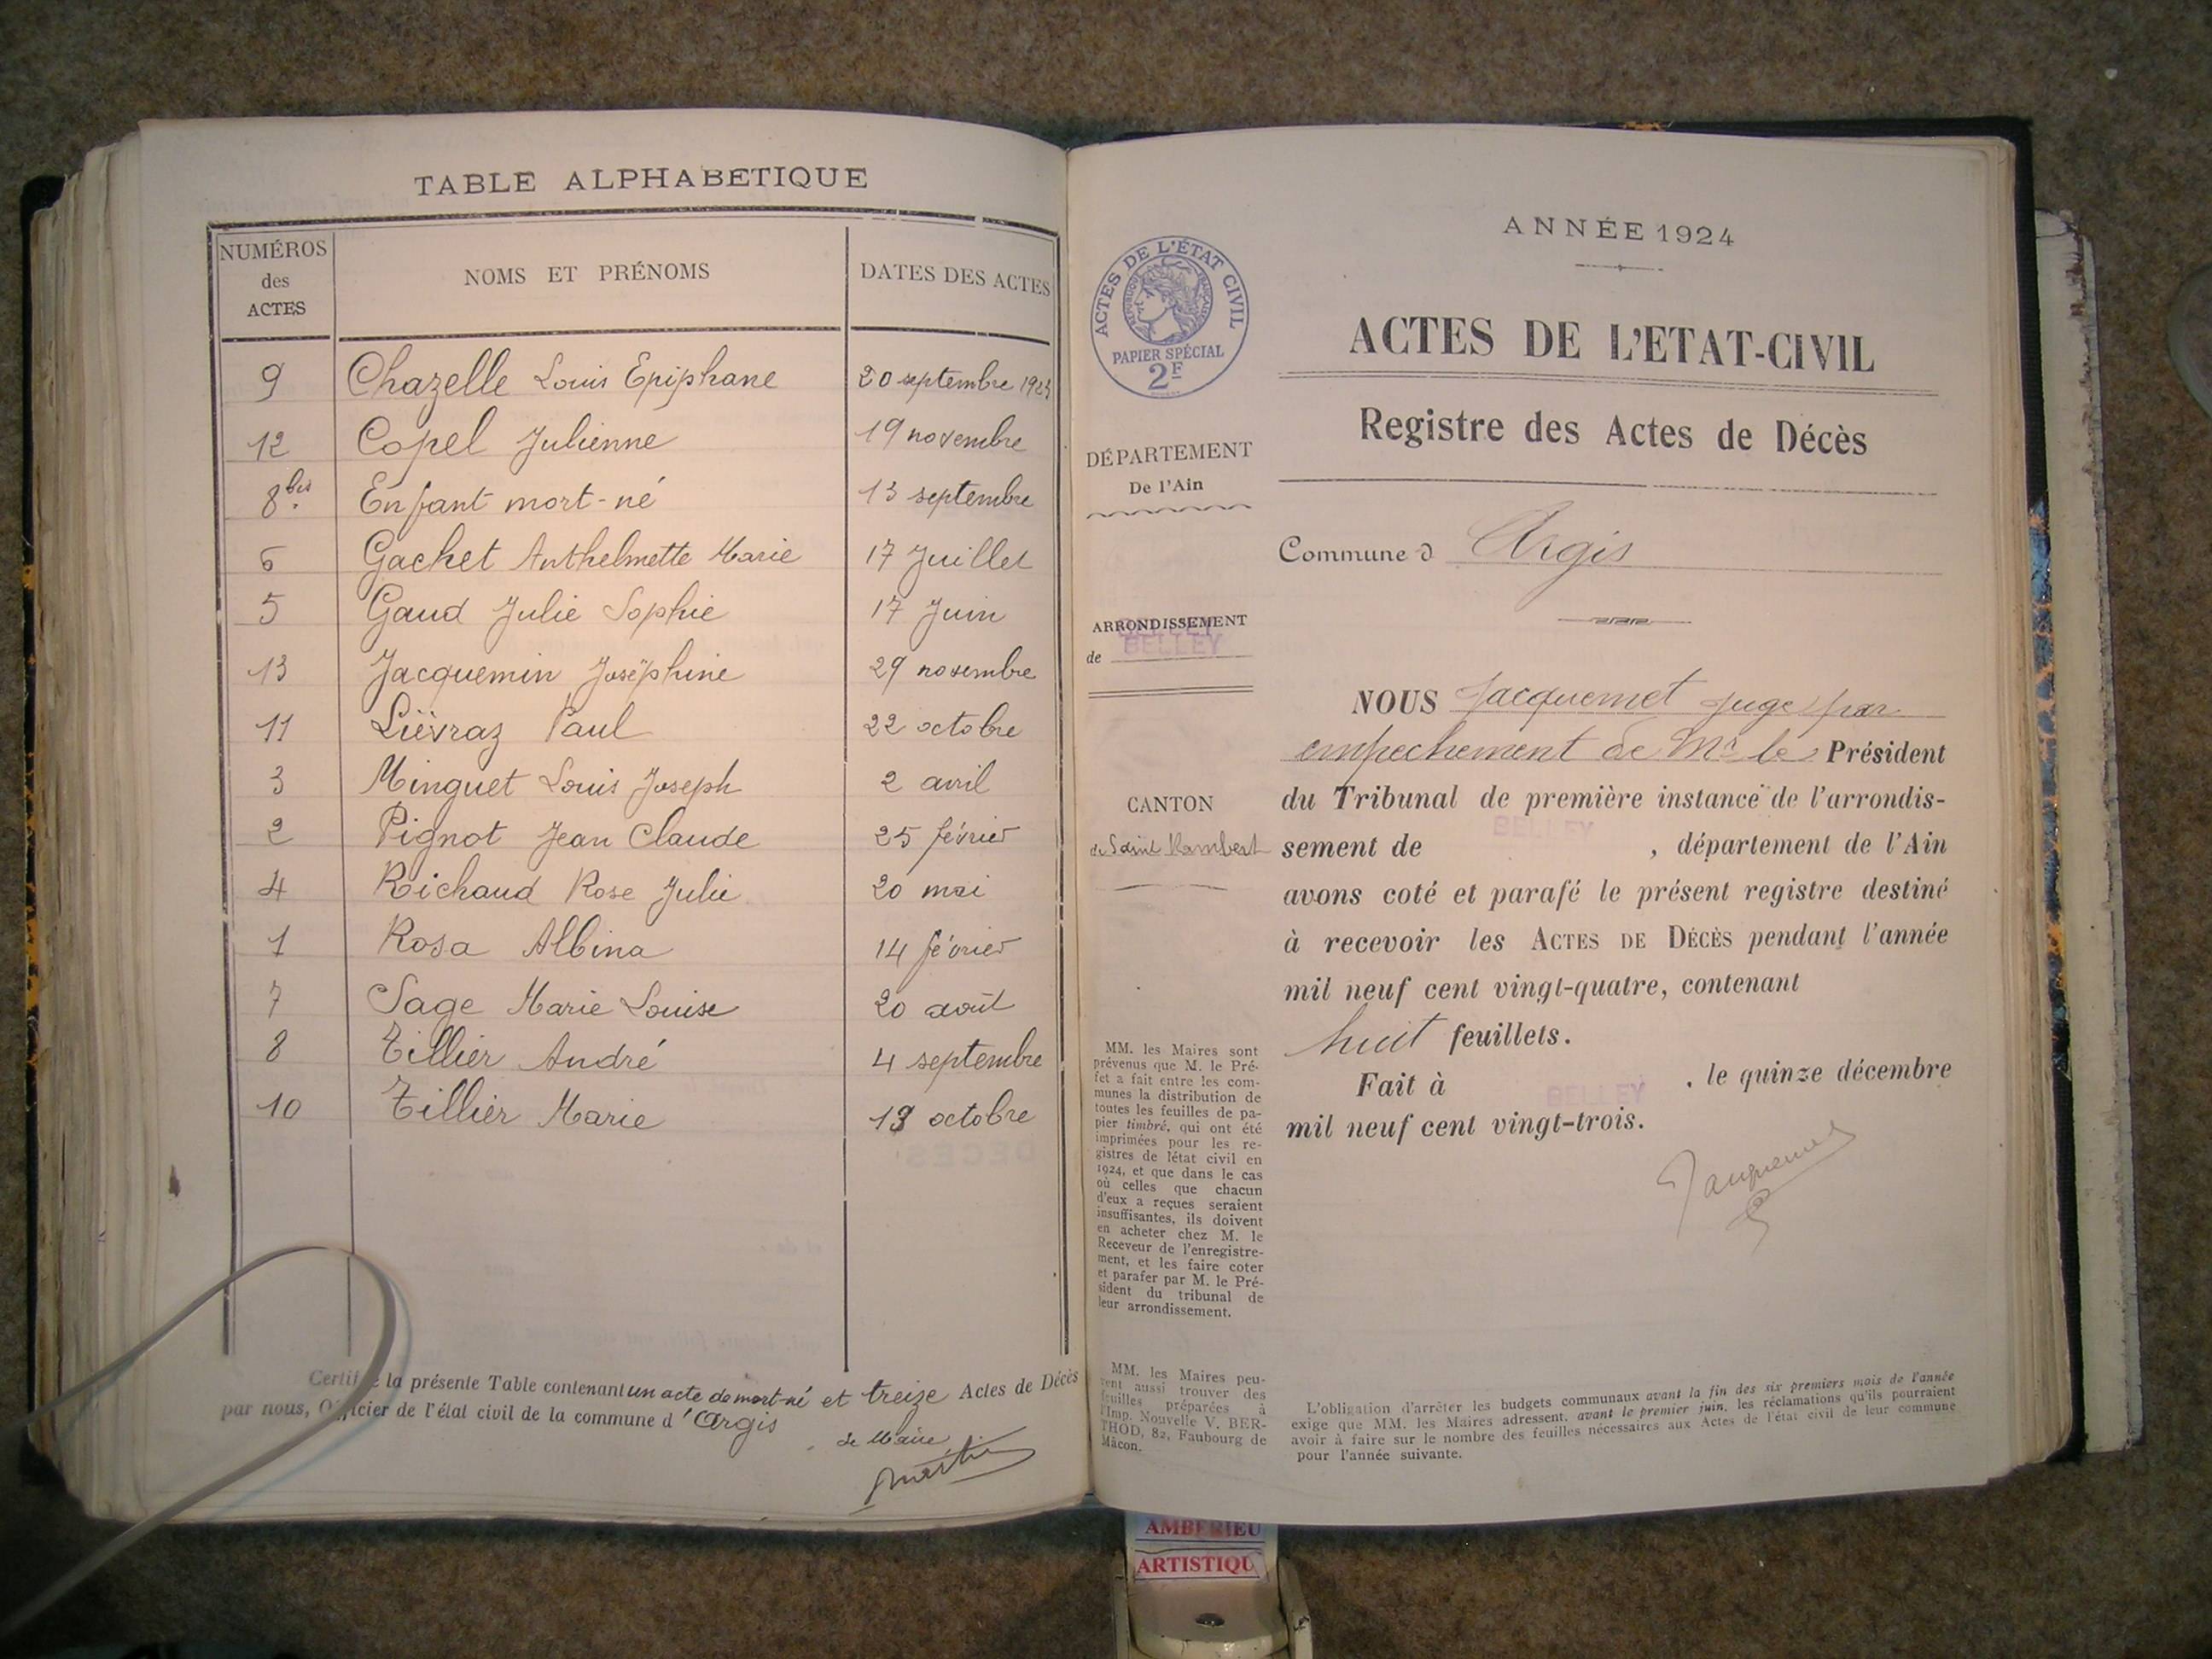 TABLE ALPHABETIQUE
NUMÉROS des ACTES NOMS ET PRÉNOMS DATES DES ACTES
9 Chazelle Louis Epiphane 20 septembre 1923
12 Copel Julienne 19 novembre
8 bis Enfant mort-né 13 septembre
6 Gachet Anthelmette Marie 17 Juillet
5 Gaud Julie Sophie 17 Juin
13 Jacquemin Joséphine 29 novembre
11 Lièvraz Paul 22 octobre
3 Minguet Louis Joseph 2 avril
2 Pignot Jean Claude 25 février
4 Richaud Rose Julie 20 mai
1 Rosa Albina 14 février
7 Sage Marie Louise 20 août
8 Tillier André 4 septembre
10 Tillier Marie 13 octobre
Certifié la présente Table contenant un acte de mort-né et treize Actes de Décès
par nous, Officier de l'état civil de la commune d'Argis
Le Maire
Martin
ACTES DE L'ÉTAT CIVIL
RÉPUBLIQUE FRANÇAISE
PAPIER SPÉCIAL
2F
DÉPARTEMENT
De l'Ain
ARRONDISSEMENT
de BELLEY
CANTON
de Saint Rambert
MM. les Maires sont
prévenus que M. le Pré-
fet a fait entre les com-
munes la distribution de
toutes les feuilles de pa-
pier timbré, qui ont été
imprimées pour les re-
gistres de létat civil en
1924, et que dans le cas
où celles que chacun
d'eux a reçues seraient
insuffisantes, ils doivent
en acheter chez M. le
Receveur de l'enregistre-
ment, et les faire coter
et parafer par M. le Pré-
sident du tribunal de
leur arrondissement.
MM. les Maires peu-
vent aussi trouver des
feuilles préparées à
l'Imp. Nouvelle V. BER-
THOD, 82, Faubourg de
Mâcon.
ANNÉE 1924
ACTES DE L'ETAT-CIVIL
Registre des Actes de Décès
Commune d Argis
NOUS Jacquemet Juge par
empechement de Mr le Président
du Tribunal de première instance de l'arrondis-
sement de BELLEY, département de l'Ain
avons coté et parafé le présent registre destiné
à recevoir les ACTES DE DÉCÈS pendant l'année
mil neuf cent vingt-quatre, contenant
huit feuillets.
Fait à BELLEY, le quinze décembre
mil neuf cent vingt-trois.
Jacquemet
L'obligation d'arrêter les budgets communaux avant la fin des six premiers mois de l'année
exige que MM. les Maires adressent, avant le premier juin, les réclamations qu'ils pourraient
avoir à faire sur le nombre des feuilles nécessaires aux Actes de l'état civil de leur commune
pour l'année suivante.
AMBERIEU
ARTISTIQU